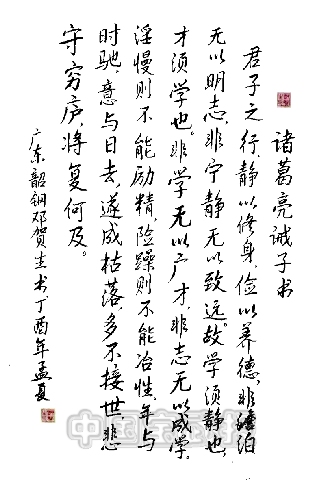 诸葛亮诫子书
君子之行,静以修身,俭以养德,非澹泊
无以明志,非宁静无以致远。故学须静也,
才须学也。非学无以广才,非志无以成学。
淫慢则不能励精,险躁则不能冶性,年与
时驰,意与日去,遂成枯落,多不接世,悲
守穷庐,将复何及。
广东韶钢邓贺书丁酉年孟夏
中国宝